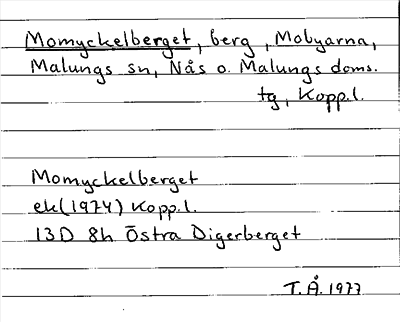 Momyckelberget, berg, Mobyarna,
Malungs sn, Nås o. Malungs doms.
tg, Kopp.l.
Momyckelberget
ek(1974) Kopp.l.
13D 8h Östra Digerberget
T.Å.1977